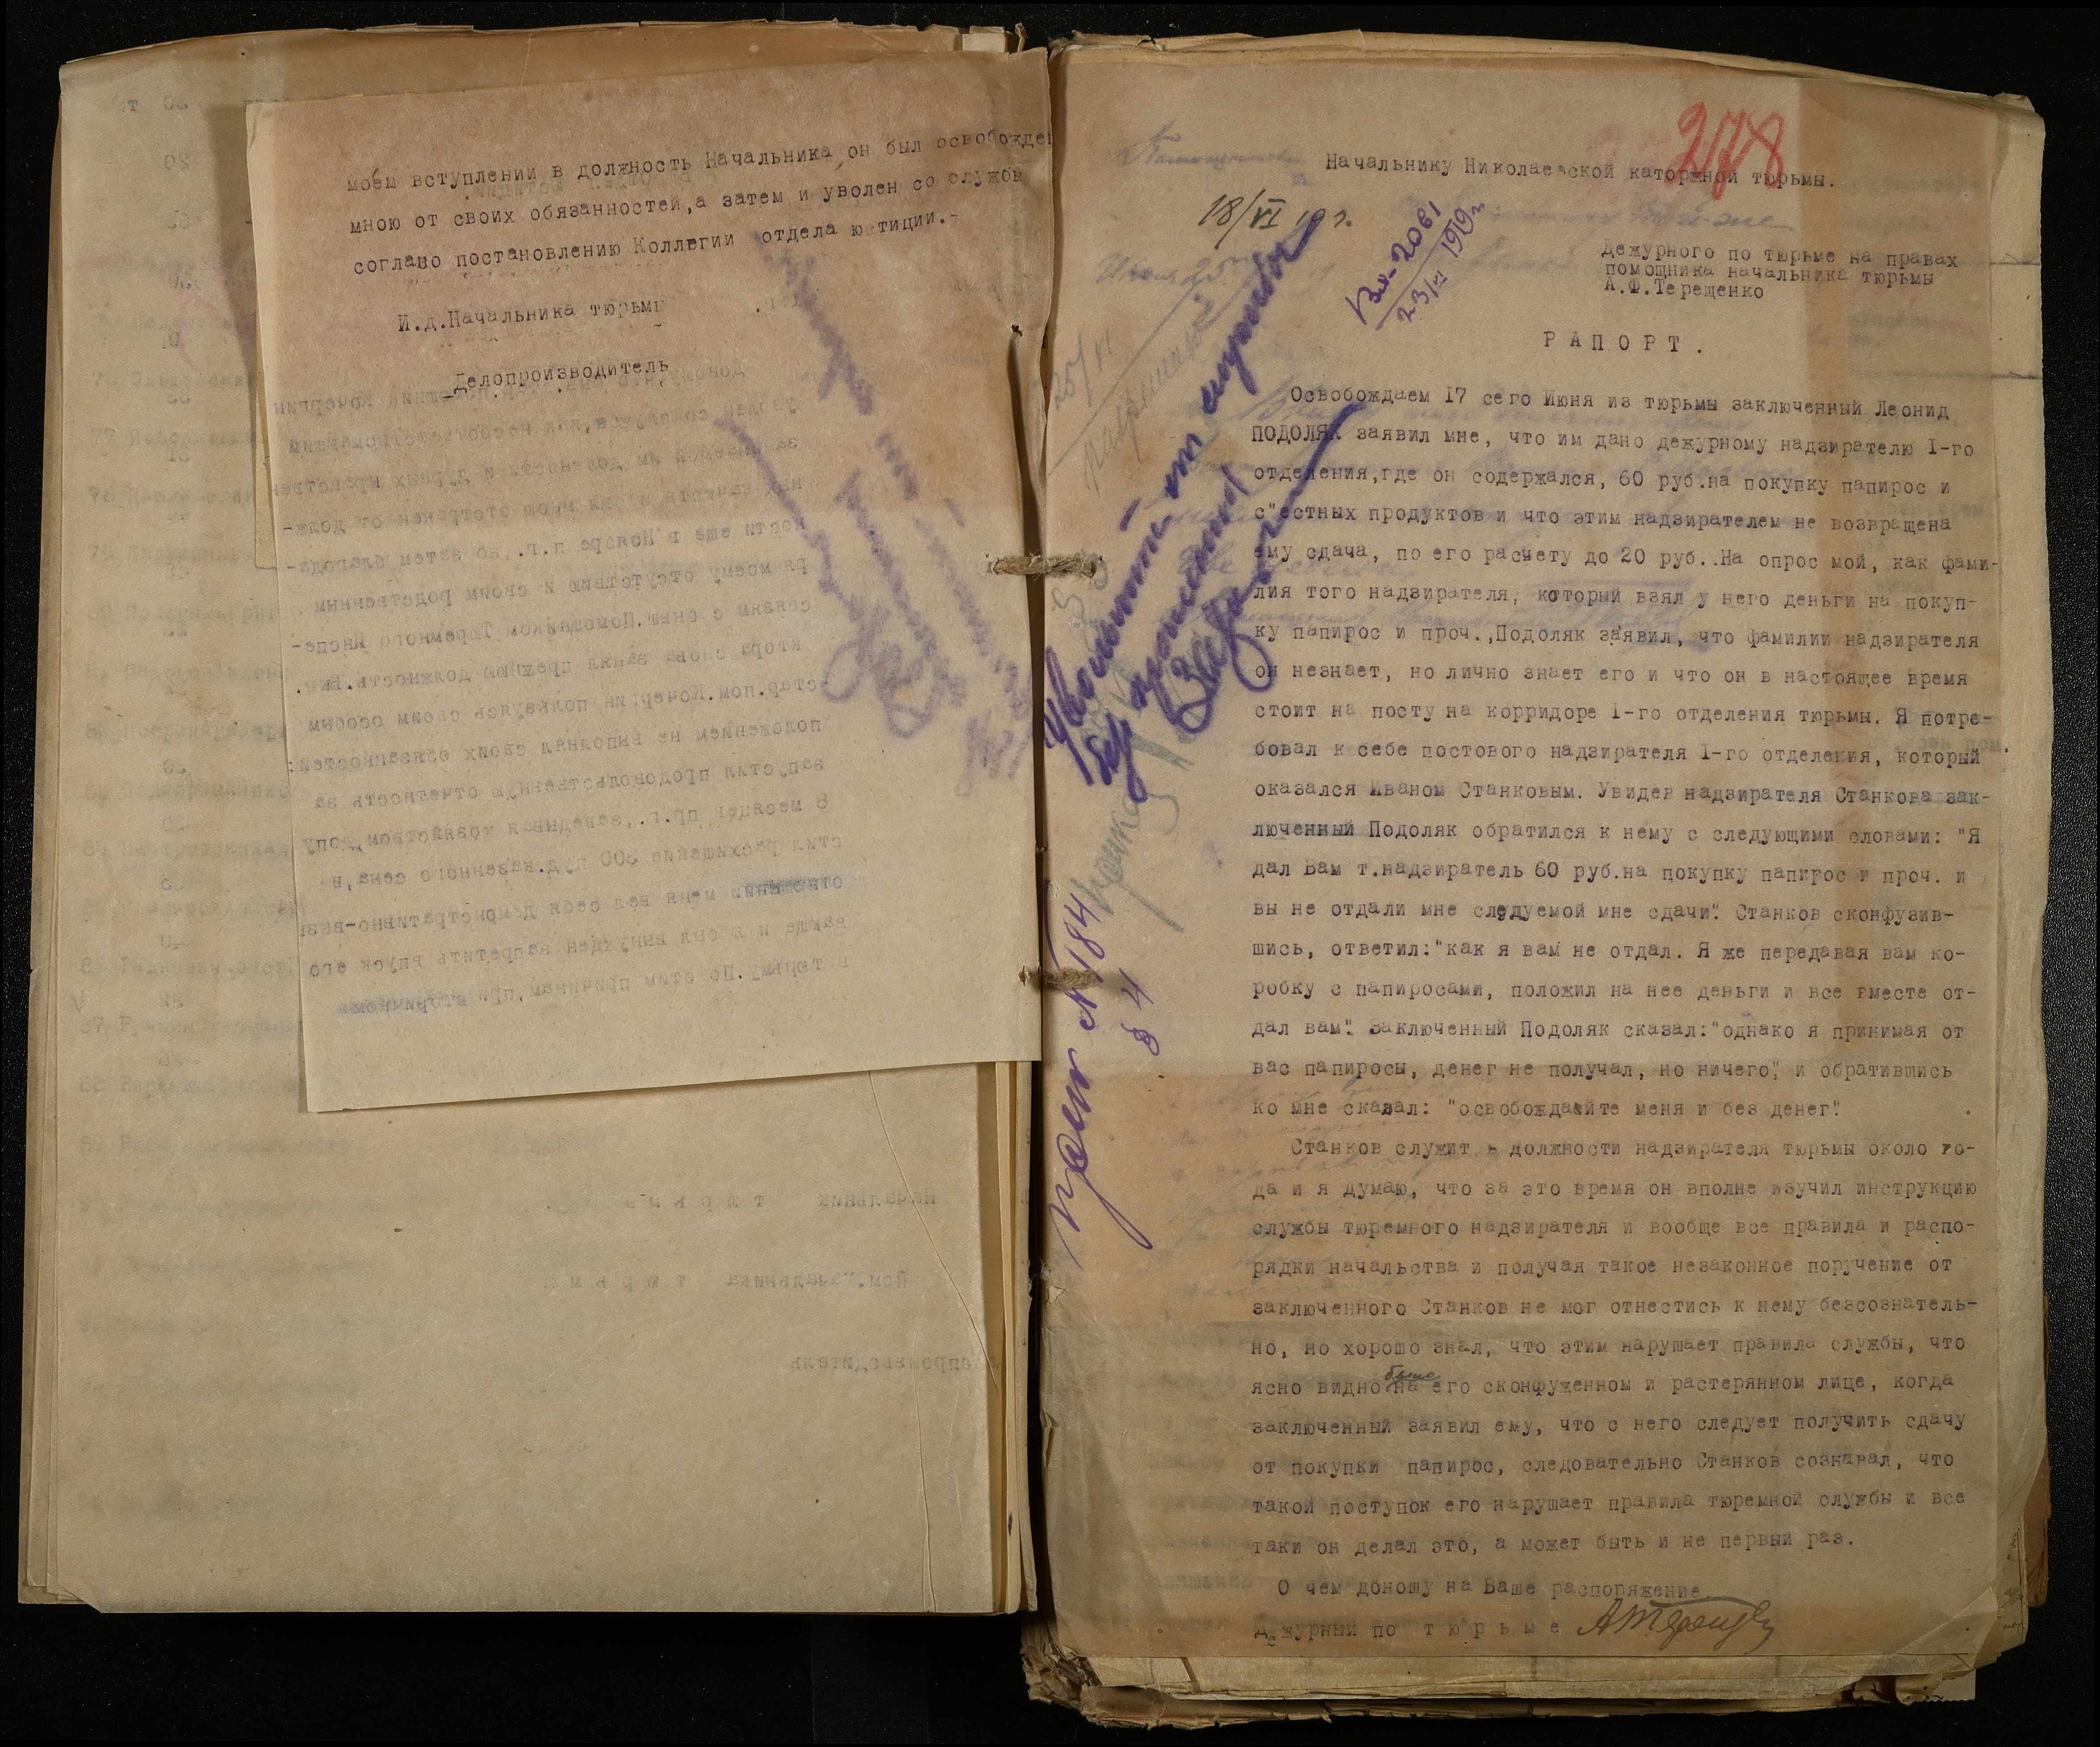 моём вступлении в должность Начальника он был освобожден
мною от своих обязанностей,а затем и уволен со службы
соглано постановлению Коллегии отдела юстиции.-
И.д.Начальника тюрьмы
Делопроизводитель
278
Начальнику Николаевской каторжной тюрьмы.
18/VI 19 г.
Вх-2061
23/VI 1919 г.
Дежурного по тюрьме на правах
помощника начальника тюрьмы
А.Ф.Терещенко
РАПОРТ.
Освобождаем 17 сего Июня из тюрьмы заключенный Леонид
ПОДОЛЯК заявил мне, что им дано дежурному надзирателю I-го
отделения,где он содержался, 60 руб.на покупку папирос и
с"естных продуктов и что этим надзирателем не возвращена
ему сдача, по его расчету до 20 руб..На опрос мой, как фами-
лия того надзирателя, который взял у него деньги на покуп-
ку папирос и проч.,Подоляк заявил, что фамилии надзирателя
он незнает, но лично знает его и что он в настоящее время
стоит на посту на корридоре I-го отделения тюрьмы. Я потре-
бовал к себе постового надзирателя I-го отделения, который
оказался Иваном Станковым. Увидев надзирателя Станкова зак-
люченный Подоляк обратился к нему с следующими словами: "Я
дал Вам т.надзиратель 60 руб.на покупку папирос и проч. и
вы не отдали мне следуемой мне сдачи". Станков сконфузив-
шись, ответил:"как я вам не отдал. Я же передавая вам ко-
робку с папиросами, положил на нее деньги и все вместе от-
дал вам". Заключенный Подоляк сказал:"однако я принимая от
вас папиросы, денег не получал, но ничего", и обратившись
ко мне сказал: "освобождайте меня и без денег".
Станков служит в должности надзирателя тюрьмы около го-
да и я думаю, что за это время он вполне изучил инструкцию
службы тюремного надзирателя и вообще все правила и распо-
рядки начальства и получая такое незаконное поручение от
заключенного Станков не мог отнестись к нему безсознатель-
но, но хорошо знал, что этим нарушает правила службы, что
ясно видно было на его сконфуженном и растерянном лице, когда
заключенный заявил ему, что с него следует получить сдачу
от покупки папирос, следовательно Станков сознавал, что
такой поступок его нарушает правила тюремной службы и все
таки он делал это, а может быть и не первый раз.
О чем доношу на Ваше распоряжение.
Дежурный по тюрьме
Уволить от службы
без прошений
приказ №184
§ 4